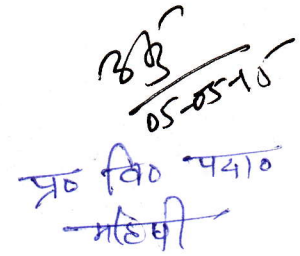 05-05-15
प्र० वि० पदा०
महिषी